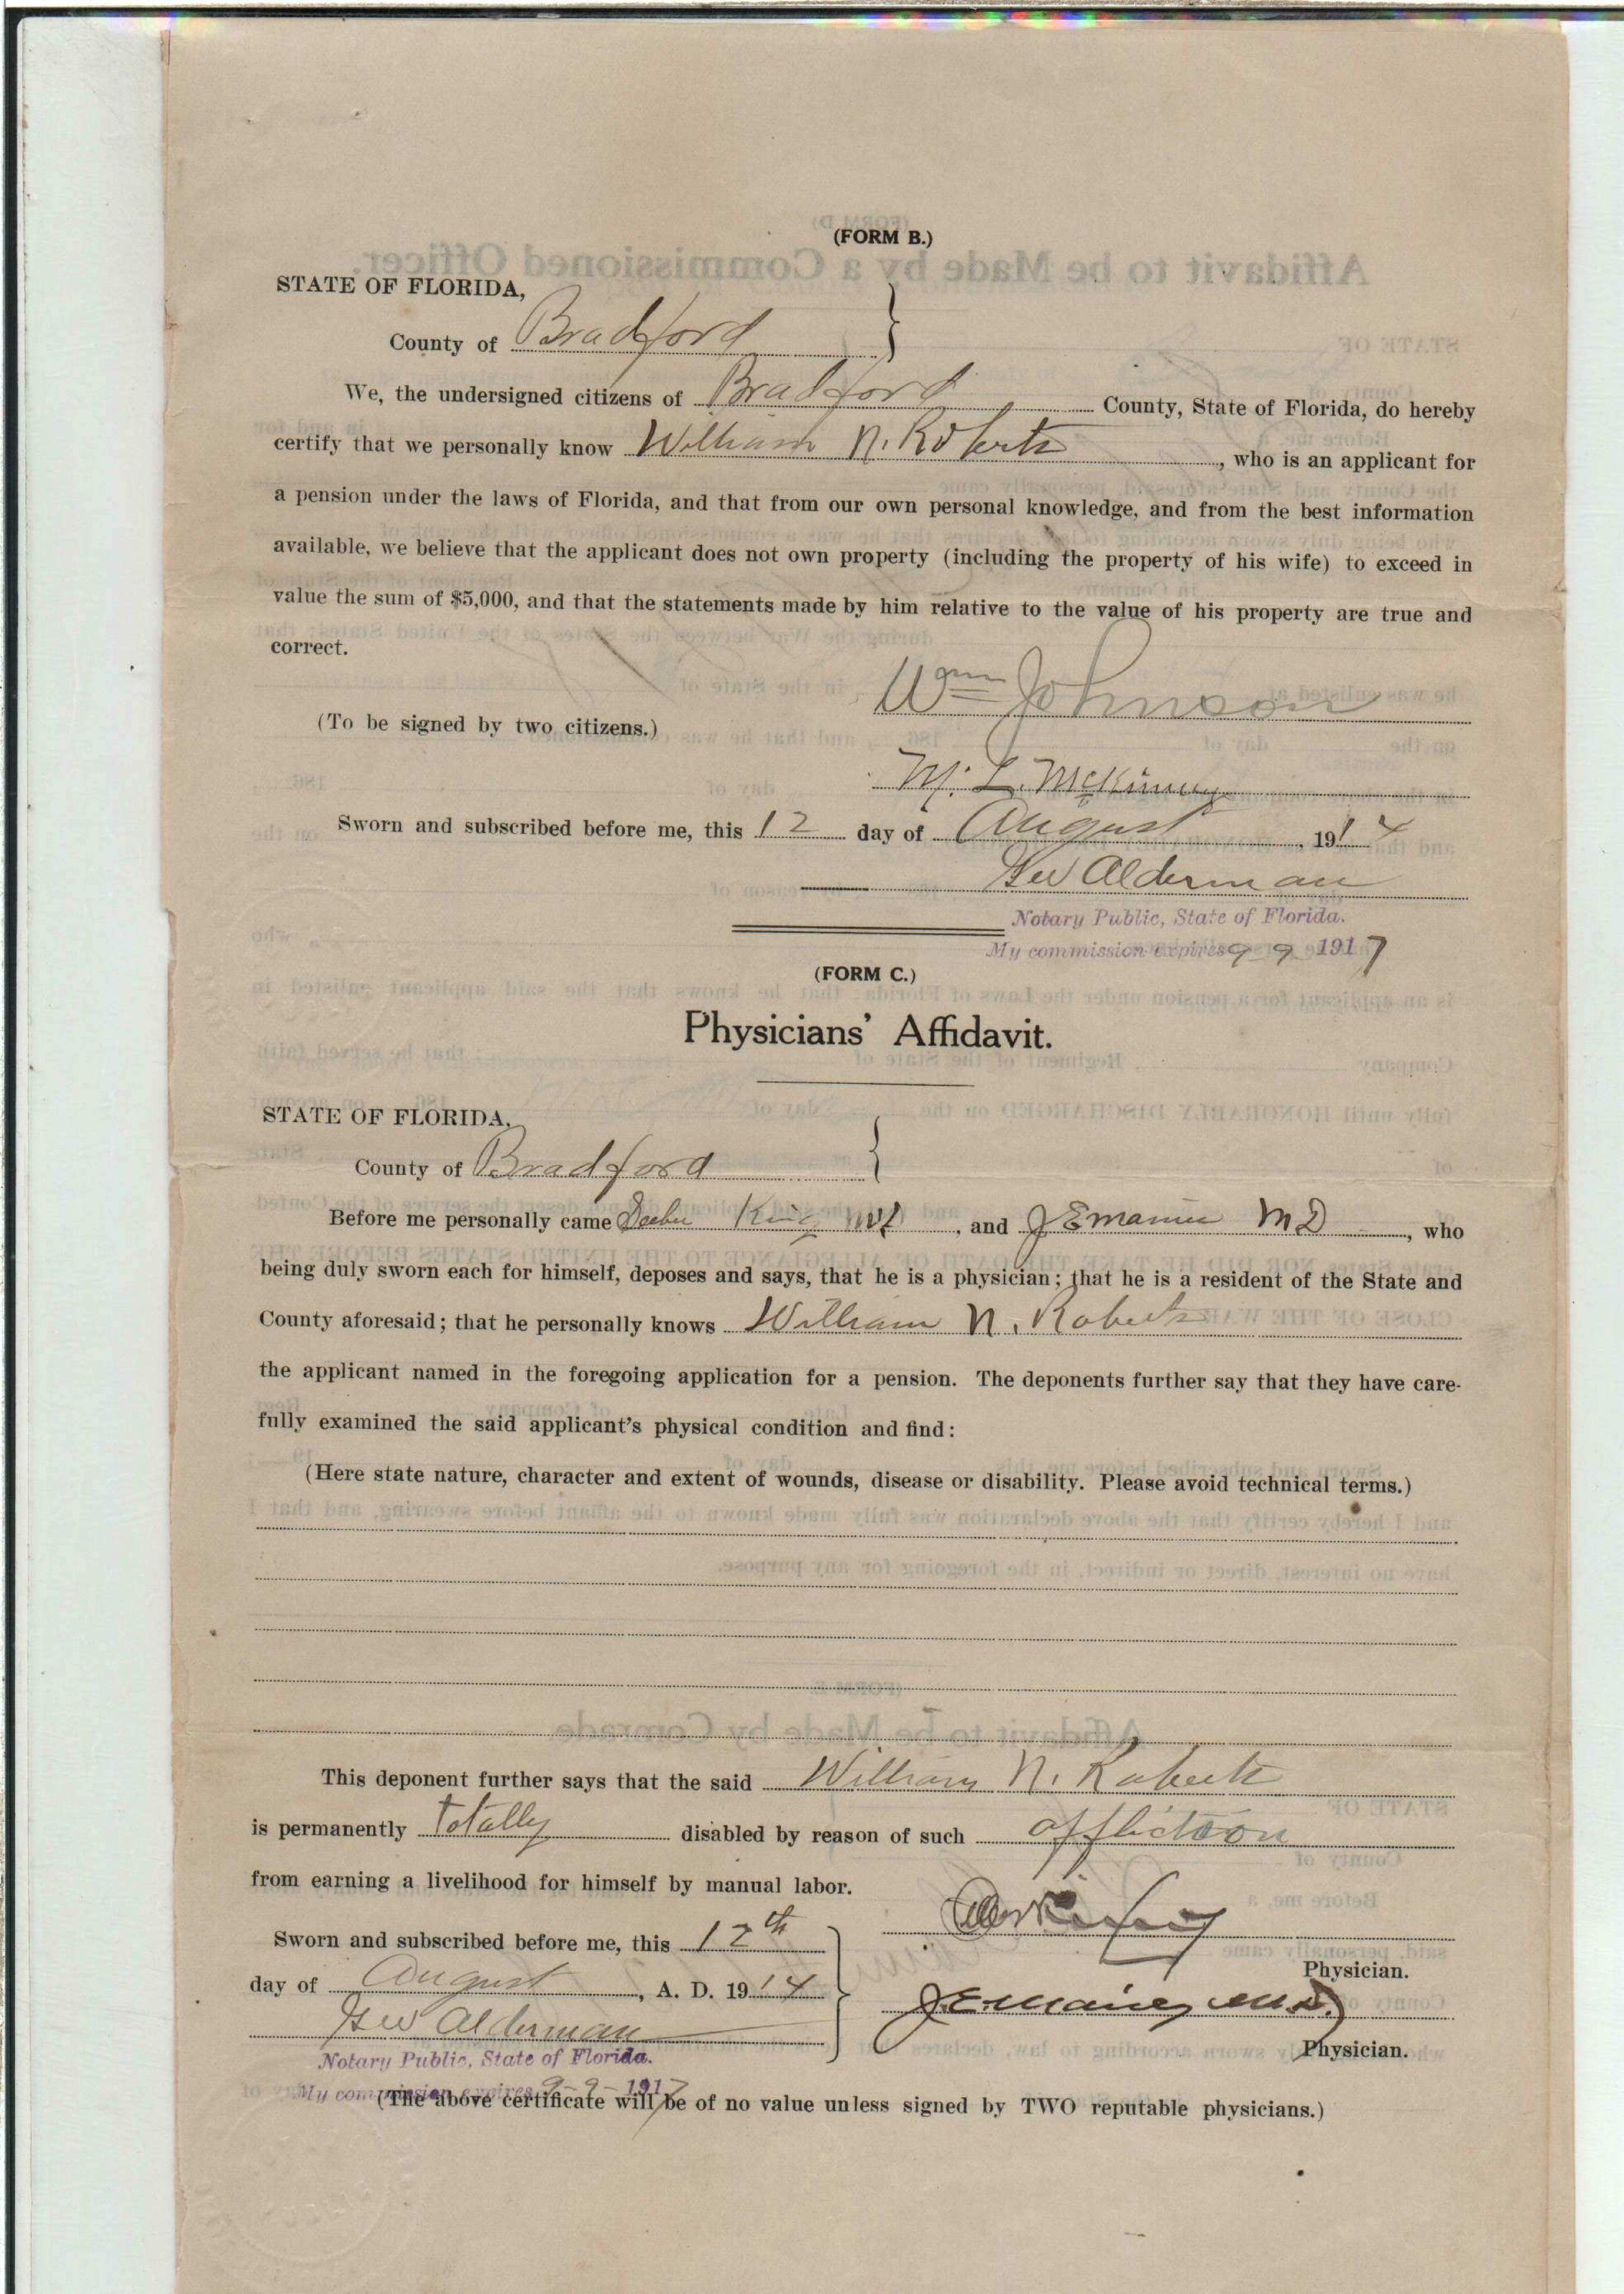 (FORM B.)
STATE OF FLORIDA,
County of Bradford
We, the undersigned citizens of Bradford County, State of Florida, do hereby
certify that we personally know William N. Roberts, who is an applicant for
a pension under the laws of Florida, and that from our own personal knowledge, and from the best information
available, we believe that the applicant does not own property (including the property of his wife) to exceed in
value the sum of $5,000, and that the statements made by him relative to the value of his property are true and
correct.
Wm Johnson
(To be signed by two citizens.)
M. L. McKinney
Sworn and subscribed before me, this 12 day of August, 1914
Alderman
Notary Public, State of Florida.
My commission expires 9 9 1917
(FORM C.)
Physicians' Affidavit.
STATE OF FLORIDA,
County of Bradford
Before me personally came King MD, and J E Maines MD, who
being duly sworn each for himself, deposes and says, that he is a physician; that he is a resident of the State and
County aforesaid; that he personally knows William N. Roberts
the applicant named in the foregoing application for a pension. The deponents further say that they have care-
fully examined the said applicant's physical condition and find:
(Here state nature, character and extent of wounds, disease or disability. Please avoid technical terms.)
This deponent further says that the said William N. Roberts
is permanently totally disabled by reason of such affliction
from earning a livelihood for himself by manual labor.
Sworn and subscribed before me, this 12th
Physician.
day of August, A. D. 1914
J E Maines M.D.
Alderman
Physician.
Notary Public, State of Florida.
My commission expires 9-9-1917
(The above certificate will be of no value unless signed by TWO reputable physicians.)